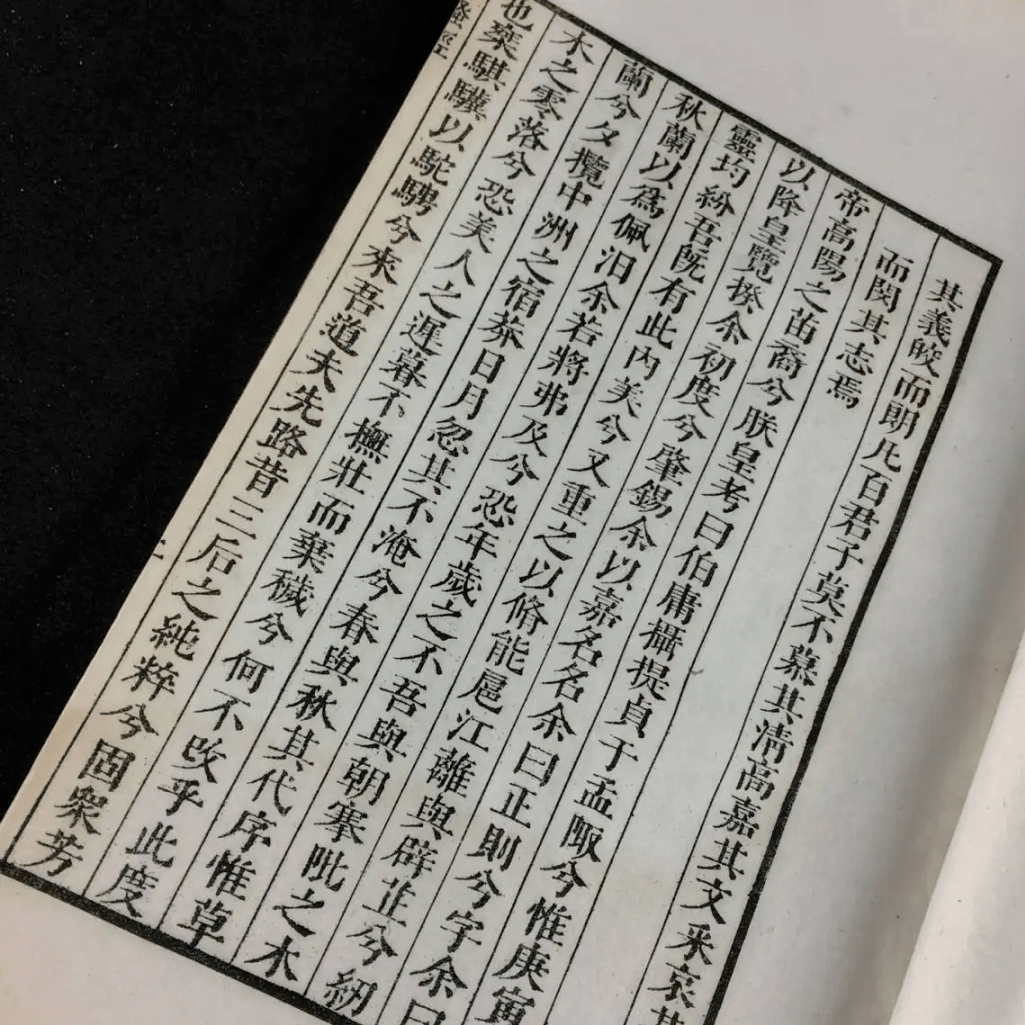 其義皎而朗凡百君子莫不慕其清高嘉其文采哀其
而閔其志焉
帝高陽之苗裔兮朕皇考曰伯庸攝提貞于孟陬兮惟庚寅
以降皇覽揆余初度兮肇錫余以嘉名名余曰正則兮字余曰
靈均紛吾既有此內美兮又重之以脩能扈江離與辟芷兮紉
秋蘭以爲佩汨余若將弗及兮恐年歲之不吾與朝搴阰之木
蘭兮夕攬中洲之宿莽日月忽其不淹兮春與秋其代序惟草
木之零落兮恐美人之遲暮不撫壯而棄穢兮何不改乎此度
也椉騏驥以駝騁兮來吾道夫先路昔三后之純粹兮固衆芳